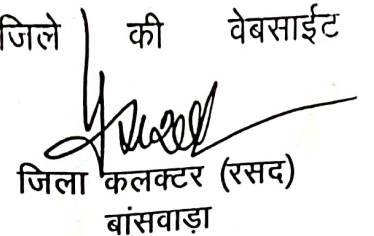 जिले की वेबसाईट
जिला कलक्टर (रसद)
बांसवाड़ा